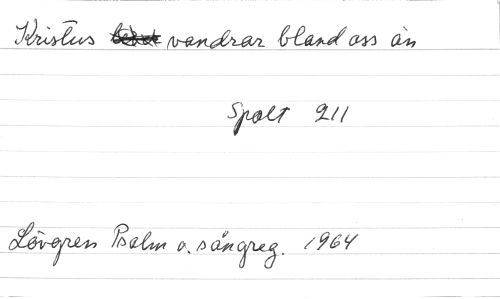 Kristus vandrar bland oss än
Spalt 211
Lövgren Psalm o. sångreg. 1964